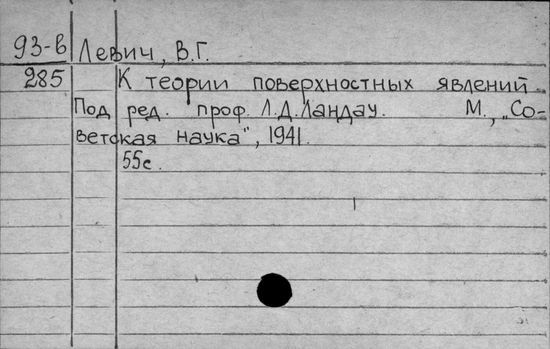 93-в Левич, В.Г.
285 К теории поверхностных явлений.
Под ред. проф. Л.Д.Ландау. М., „Со-
ветская наука", 1941.
55с.